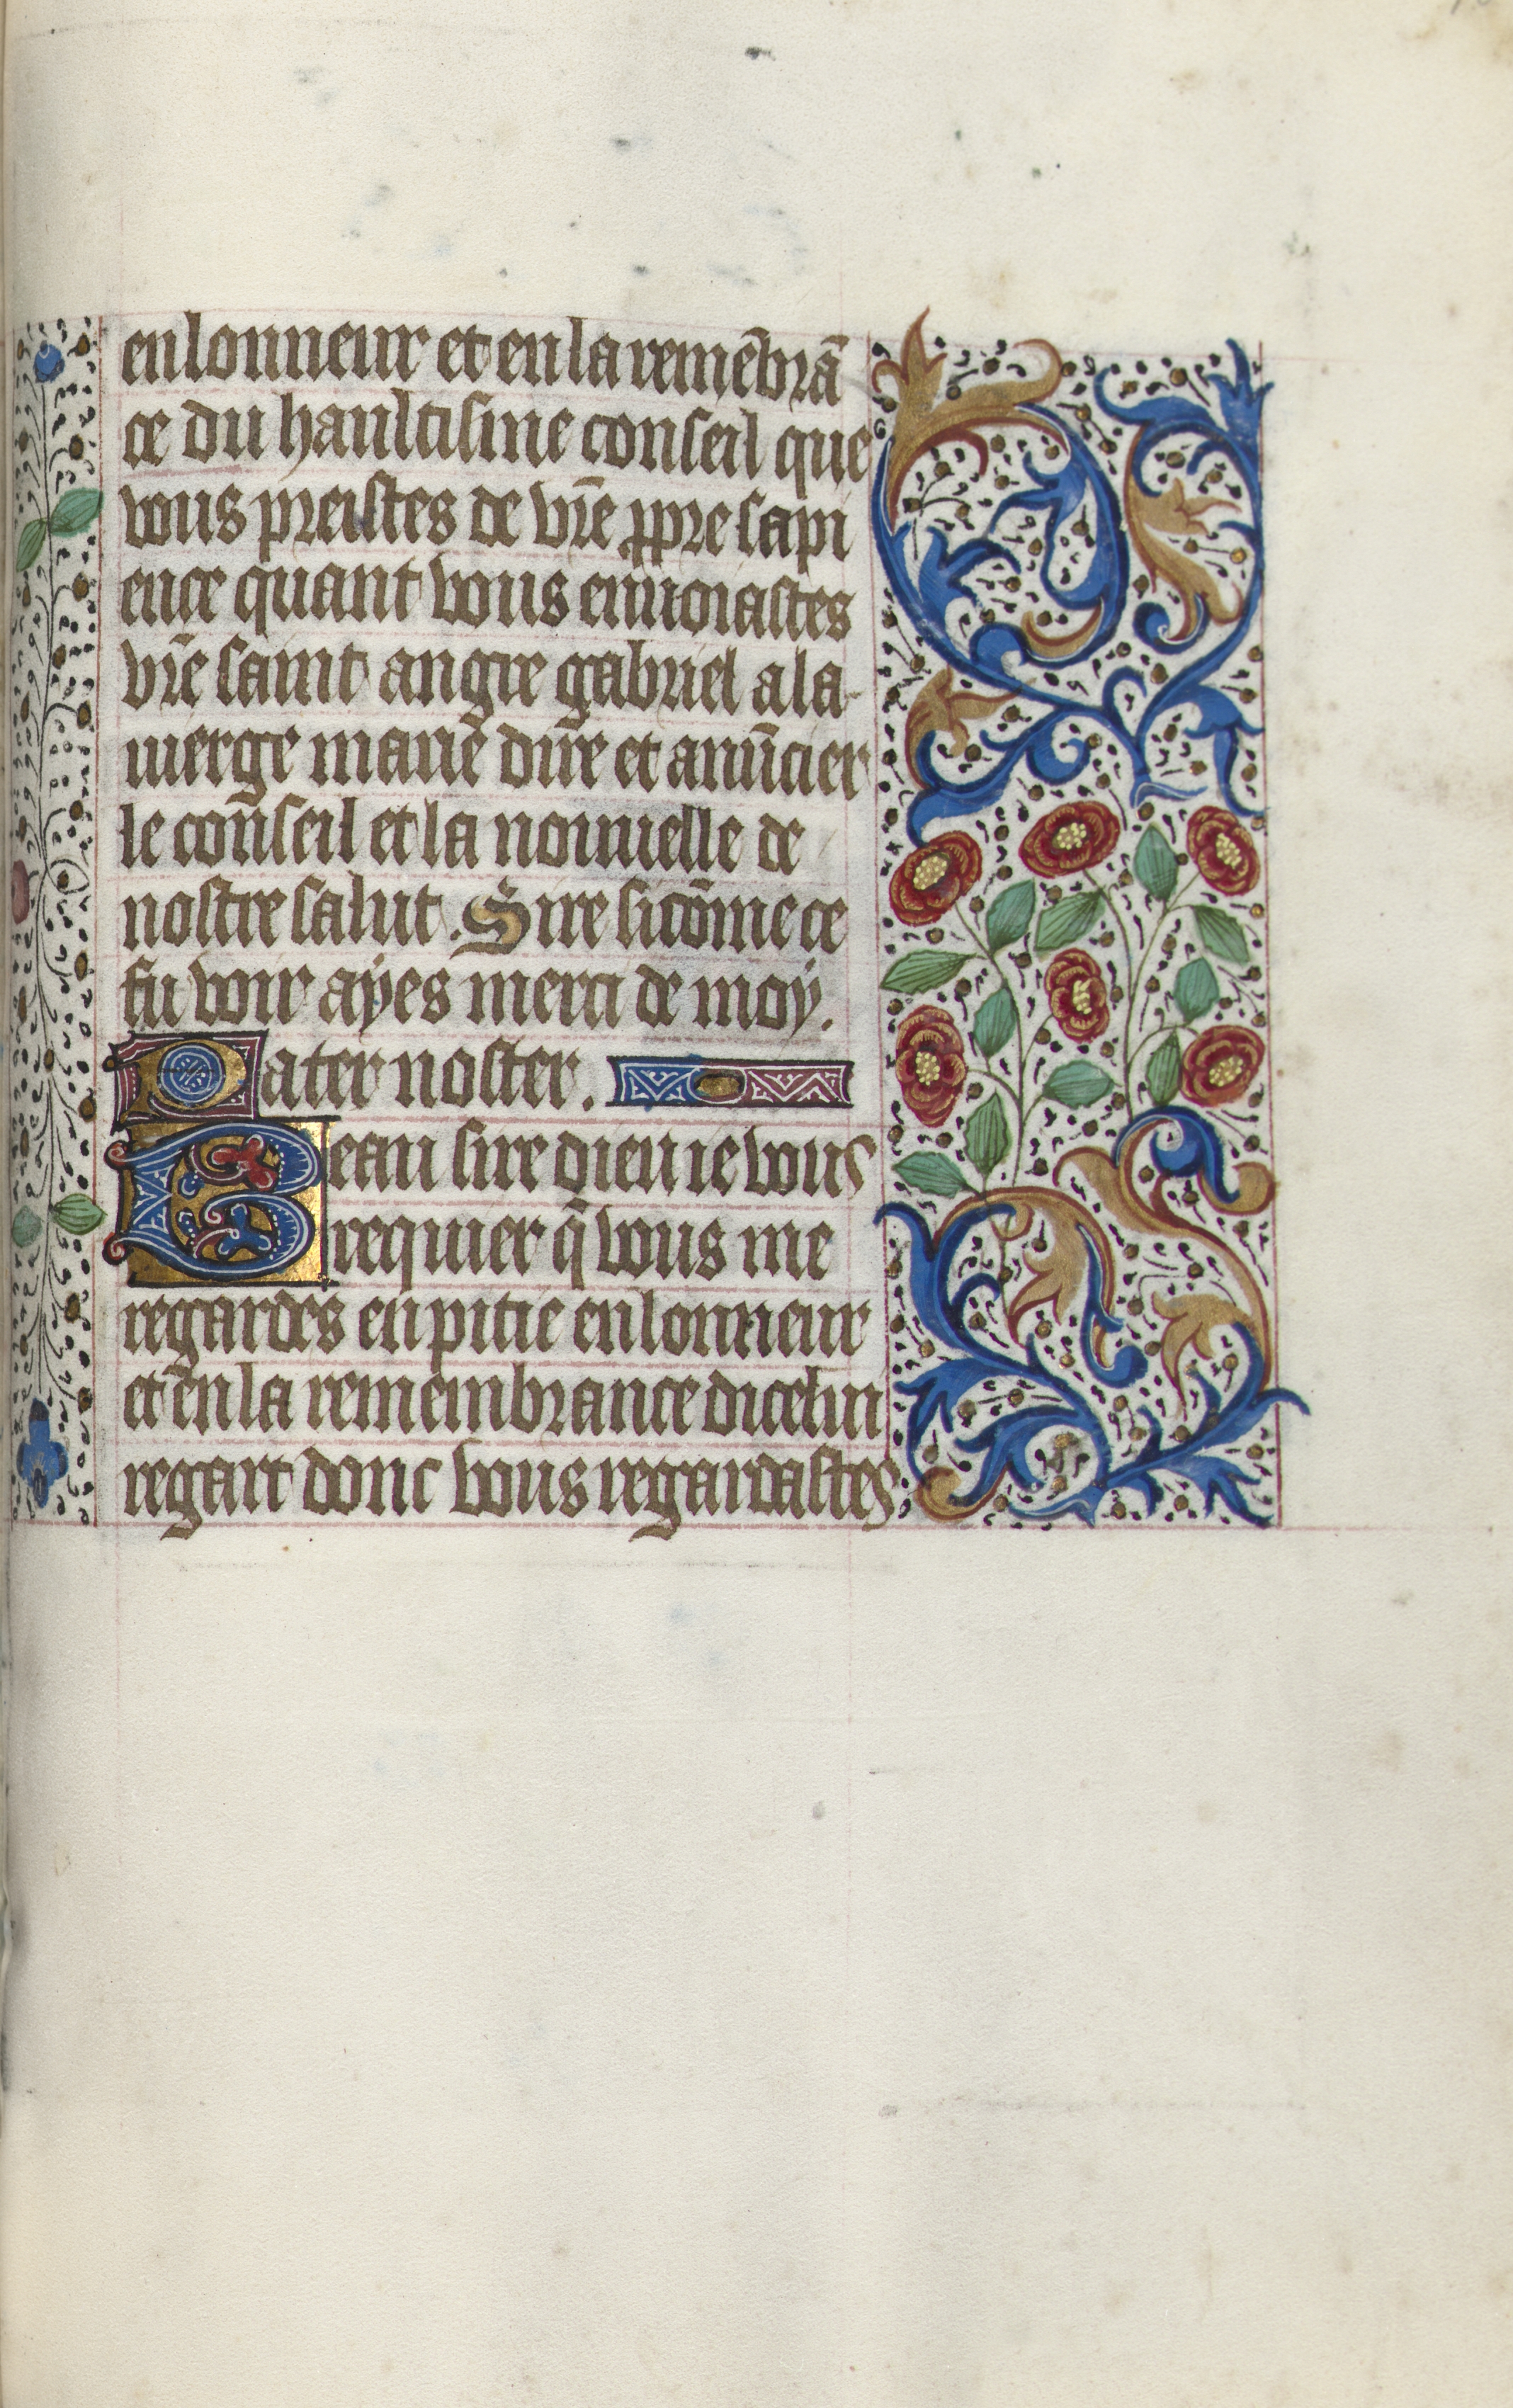 en lonneur et en la remēbrā
ce du haultisme conseil que
vous preistes de vr̄e ppre sapi
ence quant vous enuoiastes
vr̄e saint angre gabriel a la
uierge marie dire et anūcier
le conseil et la nouuelle de
nostre salut. Sire si cōme ce
fu voir ayes merci de moy.
Pater noster.
Beau sire dieu ie vous
requier q̄ vous me
regardes en pitie en lonneur
et en la remembrance dicelui
regart donc vous regardastes